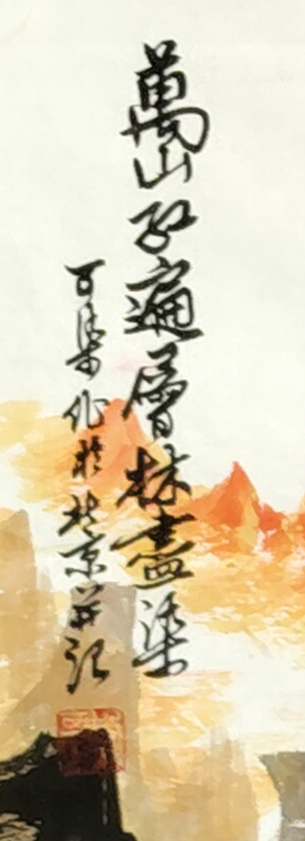 萬山红遍層林盡染
可染作於北京并記